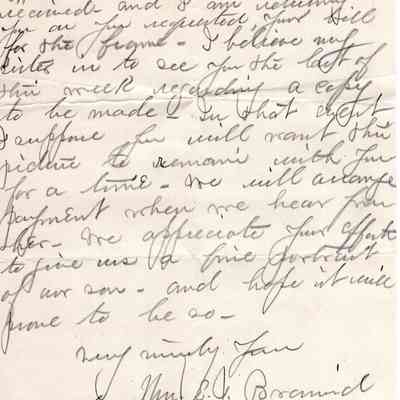 received and I am returning
you as you requested, your bill
for the frame - I believe my
sister is to see you the last of
this week regarding a copy
to be made - In that event
I suppose you will want this
picture to remain with you
for a time - We will arrange
payment when we hear from
her - We appreciate your efforts
to give us a fine portrait
of our son - and hope it will
prove to be so -
Very truly your
Mrs. E. J.